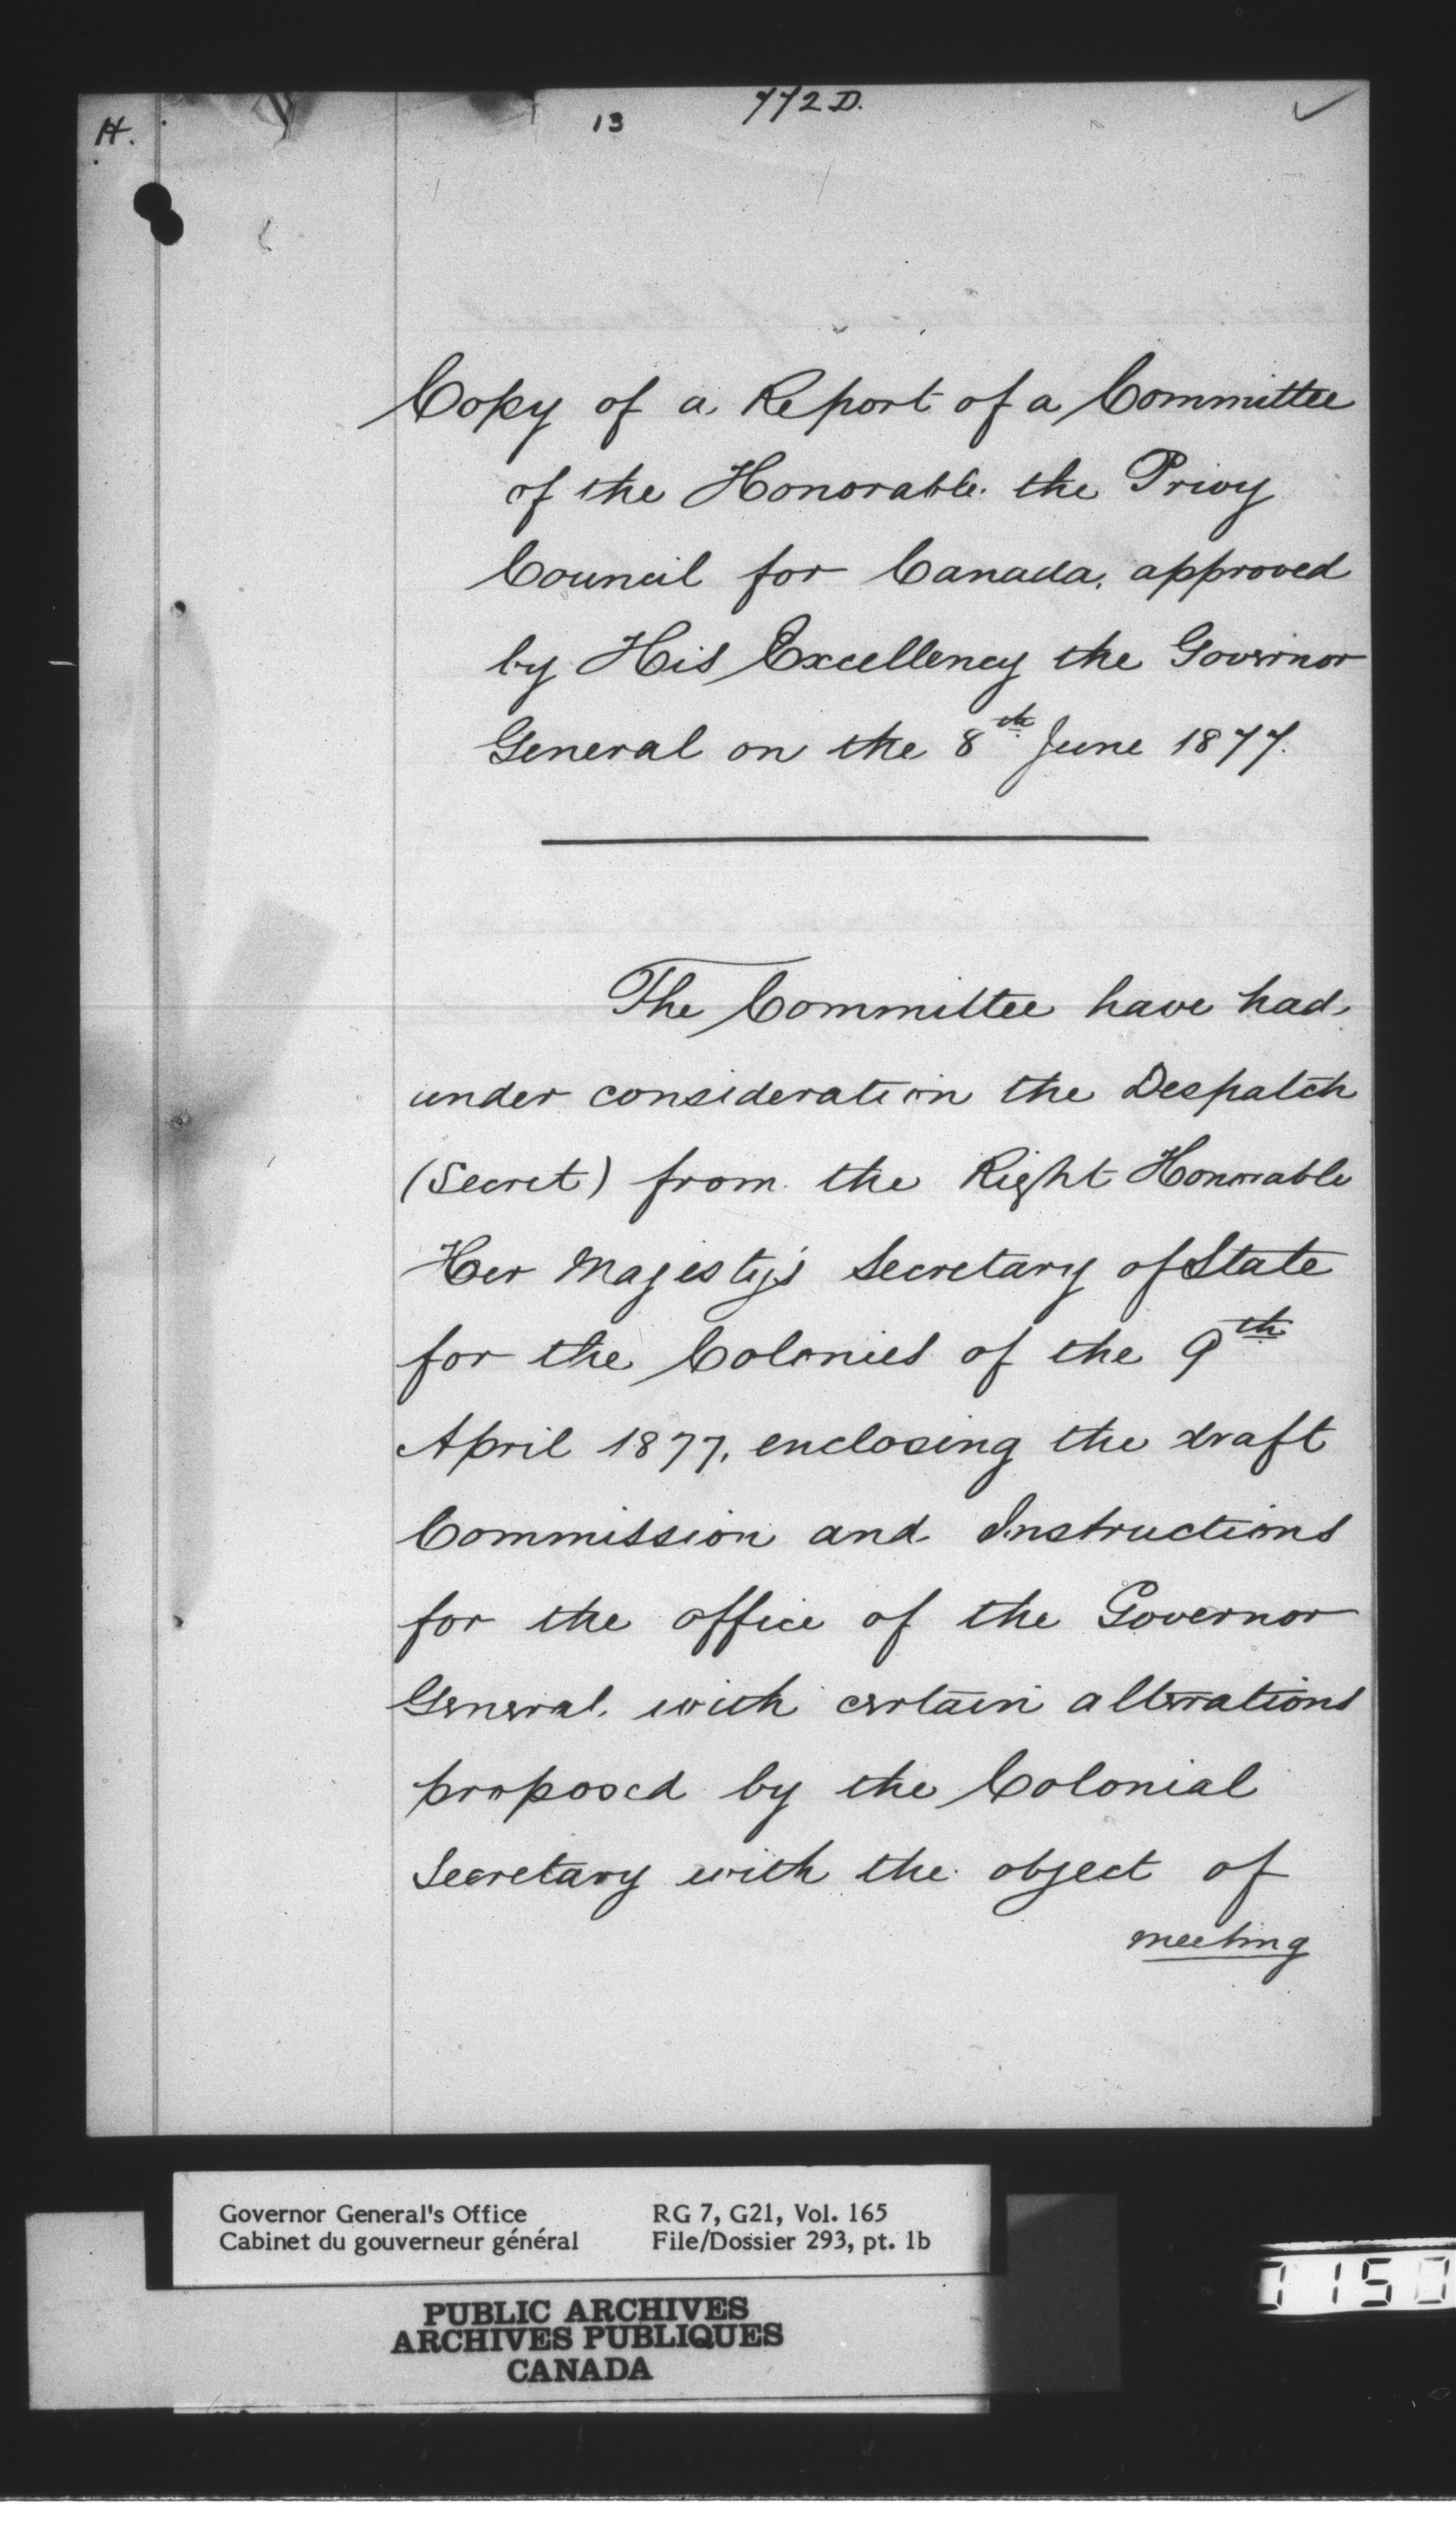 H.
13
772 D.
Copy of a Report of a Committee
of the Honorable the Privy
Council for Canada, approved
by His Excellency the Governor
General on the 8th June 1877.
The Committee have had
under consideration the Despatch
(Secret) from the Right Honorable
Her Majesty's Secretary of State
for the Colonies of the 9th
April 1877, enclosing the draft
Commission and Instructions
for the office of the Governor
General, with certain alterations
proposed by the Colonial
Secretary with the object of
meeting
Governor General's Office
Cabinet du gouverneur général
RG 7, G21, Vol. 165
File/Dossier 293, pt. 1b
PUBLIC ARCHIVES
ARCHIVES PUBLIQUES
CANADA